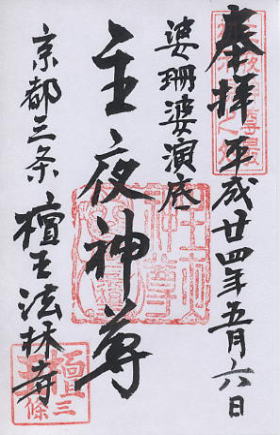 奉拝 平成廿四年五月六日
婆珊婆演底
主夜神尊
京都三条 檀王法林寺